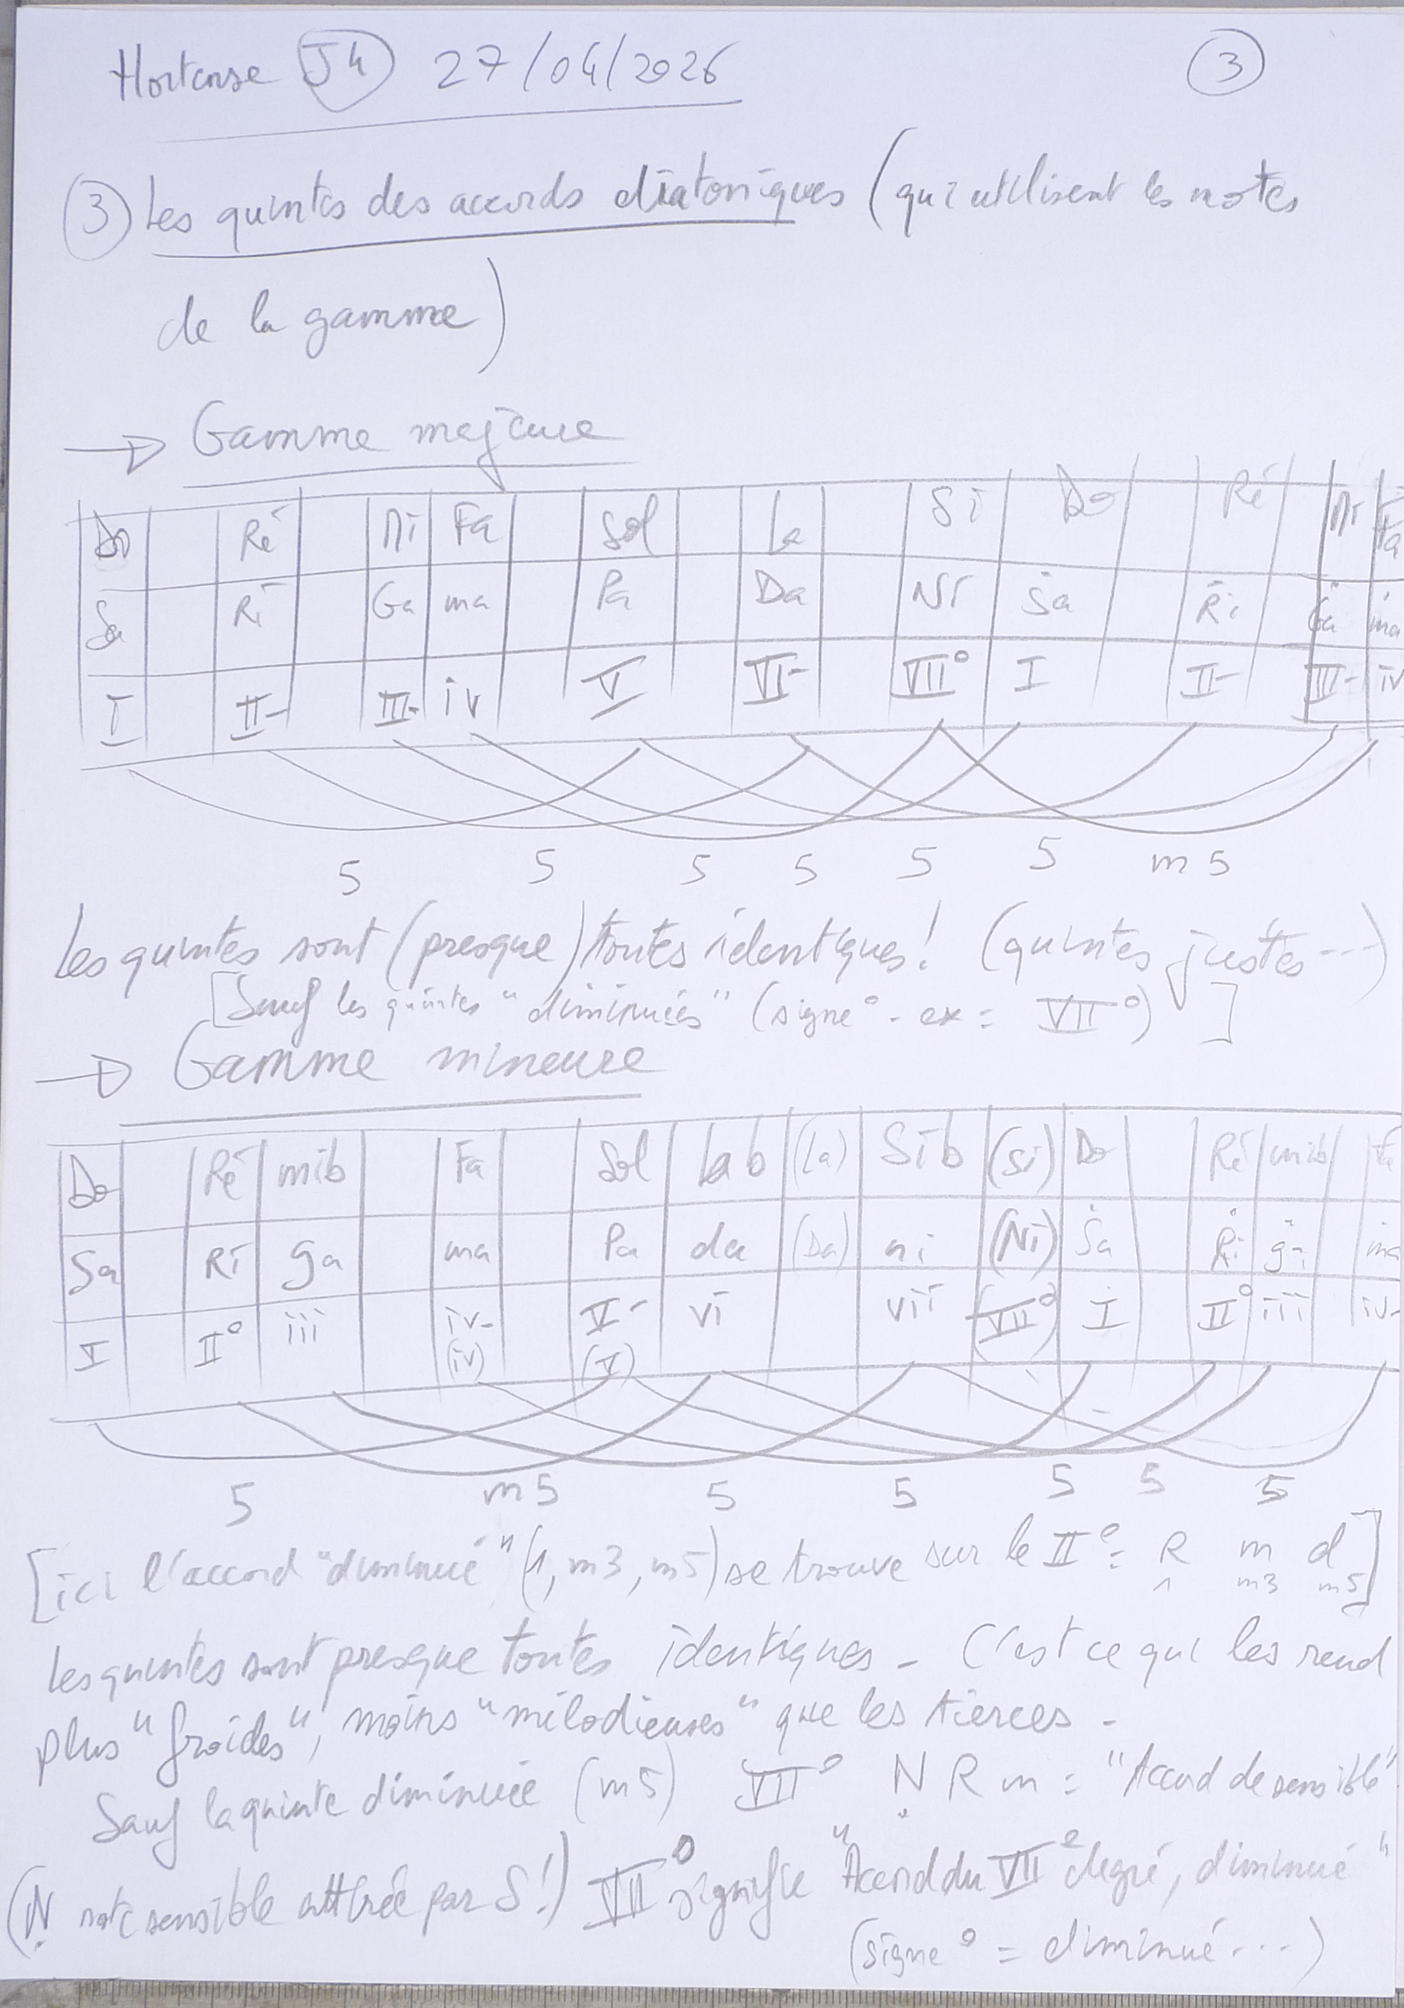 Hortense J4 27/04/2026 3
3 Les quintes des accords diatoniques (qui utilisent les notes
de la gamme)
→ Gamme majeure
Do Ré Mi Fa Sol La Si Do Ré Mi Fa
Sa Ri Ga ma Pa Da Ni Ṡa Ṙi Ġa ṁa
I II- III- iv V VI- VII° I II- III- iv
5 5 5 5 5 5 m5
Les quintes sont (presque) toutes identiques! (quintes justes...)
[Sauf les quintes "diminuées" (signe° - ex = VII°)]
→ Gamme mineure
Do Ré mib Fa Sol Lab (La) Sib (Si) Do Ré mib Fa
Sa Ri ga ma Pa da (Da) ni (Ni) Ṡa Ṙi ġa ṁa
I II° iii iv- V- vi vii (VII°) I II° iii iv-
(iv) (V)
5 m5 5 5 5 5 5
[ici l'accord "diminué" (1, m3, m5) se trouve sur le II° = R m d]
1 m3 m5
Les quintes sont presque toutes identiques - C'est ce qui les rend
plus "froides", moins "mélodieuses" que les tierces -
Sauf la quinte diminuée (m5) VII° Ṇ R m = "Accord de sensible"
(Ṇ note sensible attirée par S!) VII° signifie "Accord du VIIe degré, diminué"
(signe ° = diminué...)